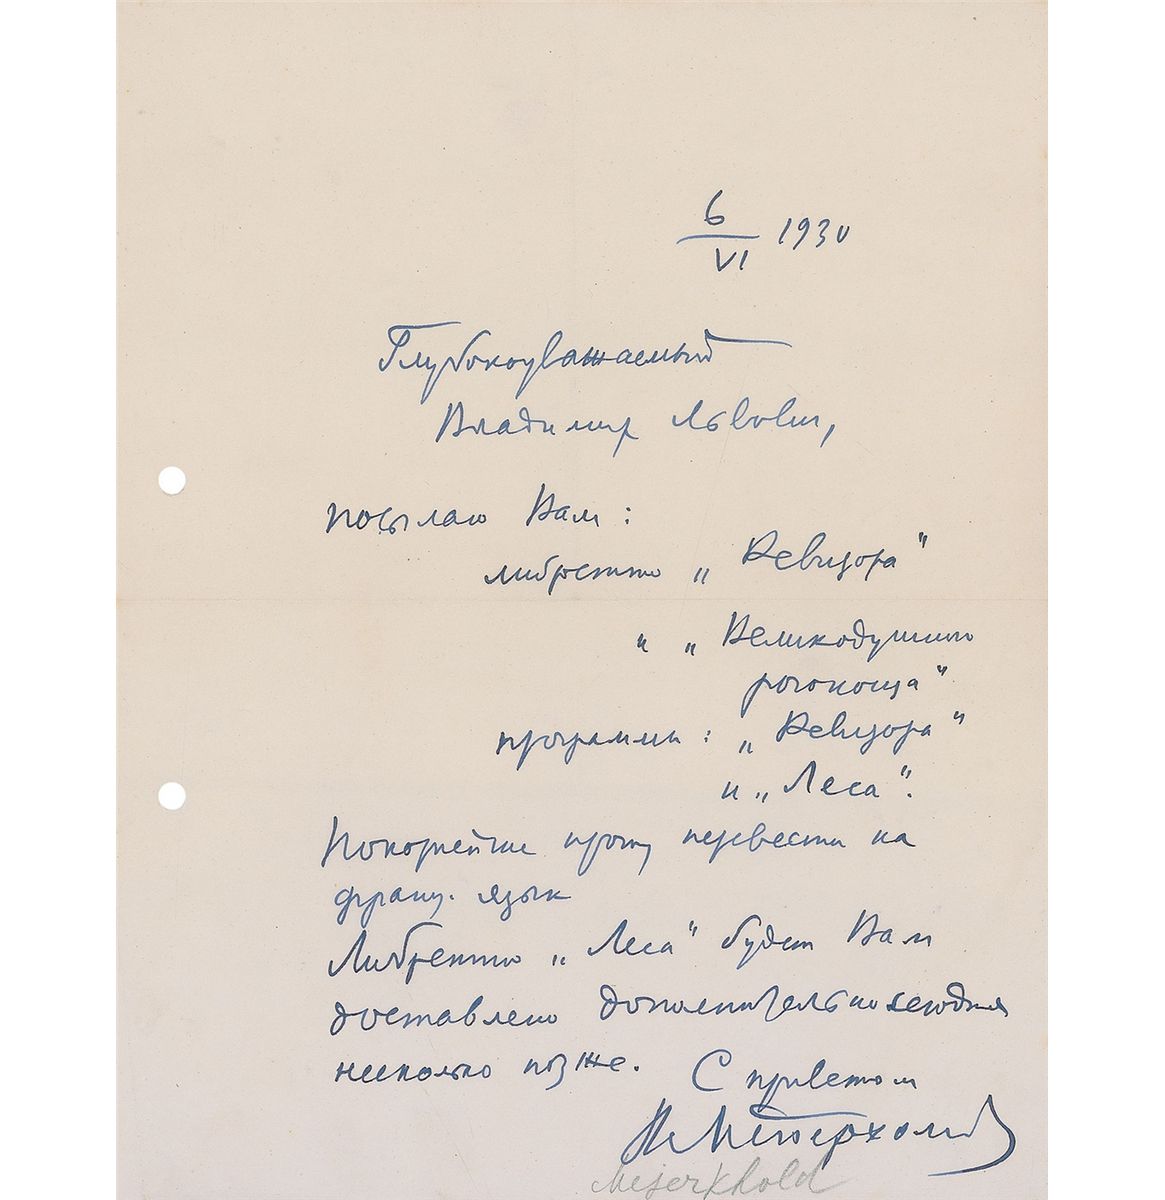 6/VI 1930
Глубокоуважаемый
Владимир Львович,
посылаю Вам:
либретто „Ревизора“
и „Великодушного
рогоносца“
программы: „Ревизора“
и „Леса“.
Покорнейше прошу перевести на
франц. язык
Либретто „Леса“ будет Вам
доставлено дополнительно сегодня
несколько позже.
С приветом
В. Мейерхольд
Mejerkhold